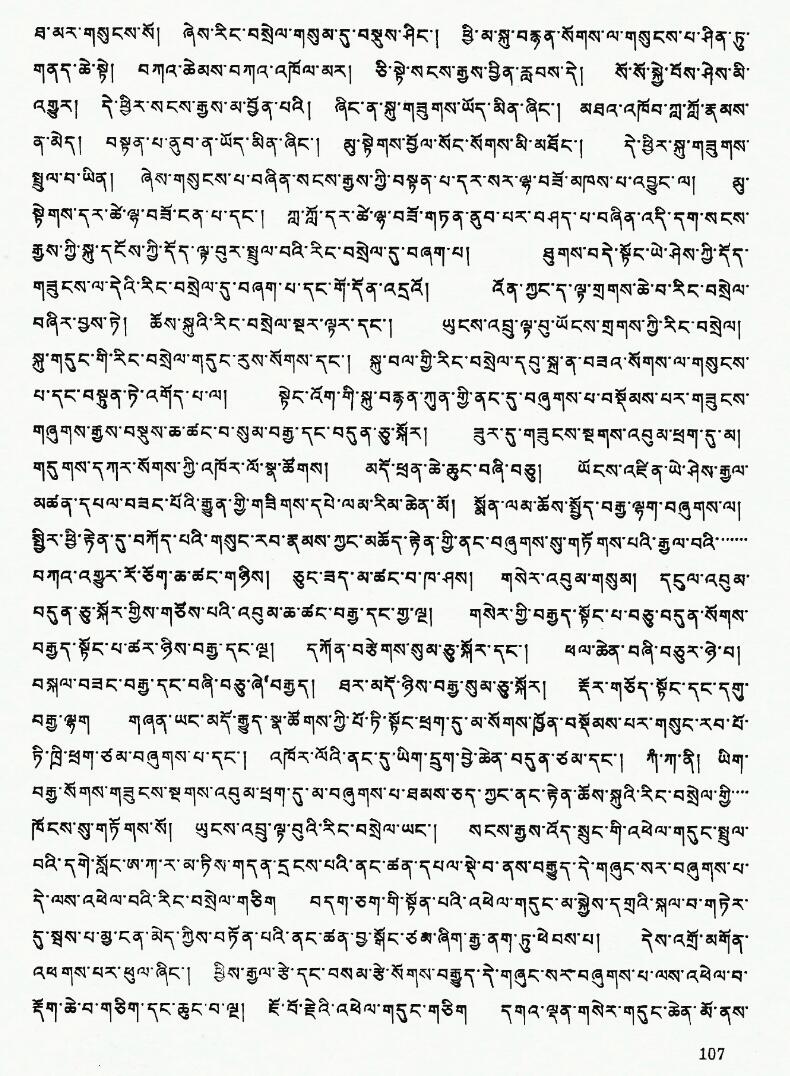 ཐ་མར་གསུངས་སོ། ཞེས་རིང་བསྲེལ་གསུམ་དུ་བསྡུས་ཤིང་། ཕྱི་མ་སྐུ་བརྙན་སོགས་ལ་གསུངས་པ་ཤིན་ཏུ་
གནད་ཆེ་སྟེ། བཀའ་ཆེམས་བཀའ་འཁོལ་མར། ཅི་སྟེ་སངས་རྒྱས་བྱིན་རླབས་དེ། སོ་སོ་སྐྱེ་བོས་ཤེས་མི་
འགྱུར། དེ་ཕྱིར་སངས་རྒྱས་མ་བྱོན་པའི། ཞིང་ན་སྐུ་གཟུགས་ཡོད་མིན་ཞིང་། མཐའ་འཁོབ་ཀླ་ཀློ་རྣམས་
ན་མེད། བསྟན་པ་ནུབ་ན་ཡོད་མིན་ཞིང་། མུ་སྟེགས་བྱོལ་སོང་སོགས་མི་མཐོང་། དེ་ཕྱིར་སྐུ་གཟུགས་
སྤྲུལ་བ་ཡིན། ཞེས་གསུངས་པ་བཞིན་སངས་རྒྱས་ཀྱི་བསྟན་པ་དར་སར་ལྷ་བཟོ་མཁས་པ་འབྱུང་ལ། མུ་
སྟེགས་དར་ཚེ་ལྷ་བཟོ་ངན་པ་དང་། ཀླ་ཀློ་དར་ཚེ་ལྷ་བཟོ་གཏན་ནུབ་པར་བཤད་པ་བཞིན་འདི་དག་སངས་
རྒྱས་ཀྱི་སྐུ་དངོས་ཀྱི་དོད་ལྟ་བུར་སྤྲུལ་བའི་རིང་བསྲེལ་དུ་བཞག་པ། ཐུགས་བདེ་སྟོང་ཡེ་ཤེས་ཀྱི་དོད་
གཟུངས་ལ་དེའི་རིང་བསྲེལ་དུ་བཞག་པ་དང་གོ་དོན་འདྲའོ། འོན་ཀྱང་ད་ལྟ་གྲགས་ཆེ་བ་རིང་བསྲེལ་
བཞིར་བྱས་ཏེ། ཆོས་སྐུའི་རིང་བསྲེལ་སྔར་ལྟར་དང་། ཡུངས་འབྲུ་ལྟ་བུ་ཡོངས་གྲགས་ཀྱི་རིང་བསྲེལ།
སྐུ་གདུང་གི་རིང་བསྲེལ་གདུང་རུས་སོགས་དང་། སྐུ་བལ་གྱི་རིང་བསྲེལ་དབུ་སྐྲ་ན་བཟའ་སོགས་ལ་གསུངས་
པ་དང་བསྟུན་ཏེ་འགོད་པ་ལ། སྟེང་འོག་གི་སྐུ་བརྙན་ཀུན་གྱི་ནང་དུ་བཞུགས་པ་བསྡོམས་པར་གཟུངས་
གཞུགས་རྒྱས་བསྡུས་ཆ་ཚང་བ་སུམ་བརྒྱ་དང་བདུན་ཅུ་སྐོར། ཟུར་དུ་གཟུངས་སྔགས་འབུམ་ཕྲག་དུ་མ།
གདུགས་དཀར་སོགས་ཀྱི་འཁོར་ལོ་སྣ་ཚོགས། མདོ་ཕྲན་ཆེ་ཆུང་བཞི་བཅུ། ཡོངས་འཛིན་ཡེ་ཤེས་རྒྱལ་
མཚན་དཔལ་བཟང་པོའི་རྒྱུན་གྱི་གཟིགས་དཔེ་ལམ་རིམ་ཆེན་མོ། སྨོན་ལམ་ཆོས་སྤྱོད་བརྒྱ་ལྷག་བཞུགས་ལ།
སྤྱིར་ཕྱི་རྟེན་དུ་བཀོད་པའི་གསུང་རབ་རྣམས་ཀྱང་མཆོད་རྟེན་གྱི་ནང་བཞུགས་སུ་གཏོགས་པའི་རྒྱལ་བའི་……
བཀའ་འགྱུར་རོ་ཅོག་ཆ་ཚང་གཉིས། ཅུང་ཟད་མ་ཚང་བ་ཁ་ཤས། གསེར་འབུམ་གསུམ། དངུལ་འབུམ་
བདུན་ཅུ་སྐོར་གྱིས་གཙོས་པའི་འབུམ་ཆ་ཚང་བརྒྱ་དང་གྱ་ལྔ། གསེར་གྱི་བརྒྱད་སྟོང་པ་བཅུ་བདུན་སོགས་
བརྒྱད་སྟོང་པ་ཚར་ཉིས་བརྒྱ་དང་ལྔ། དཀོན་བརྩེགས་སུམ་ཅུ་སྐོར་དང་། ཕལ་ཆེན་བཞི་བཅུར་ཉེ་བ།
བསྐལ་བཟང་བརྒྱ་དང་བཞི་བཅུ་ཞེ་བརྒྱད། ཐར་མདོ་ཉིས་བརྒྱ་སུམ་ཅུ་སྐོར། རྡོར་གཅོད་སྟོང་དང་དགུ་
བརྒྱ་ལྷག གཞན་ཡང་མདོ་རྒྱུད་སྣ་ཚོགས་ཀྱི་པོ་ཏི་སྟོང་ཕྲག་དུ་མ་སོགས་ཁྱོན་བསྡོམས་པར་གསུང་རབ་པོ་
ཏི་ཁྲི་ཕྲག་ཙམ་བཞུགས་པ་དང་། འཁོར་ལོའི་ནང་དུ་ཡིག་དྲུག་བྱེ་ཆེན་བདུན་ཙམ་དང་། ཀཾ་ཀ་ནི། ཡིག་
བརྒྱ་སོགས་གཟུངས་སྔགས་འབུམ་ཕྲག་དུ་མ་བཞུགས་པ་ཐམས་ཅད་ཀྱང་ནང་རྟེན་ཆོས་སྐུའི་རིང་བསྲེལ་གྱི་…
ཁོངས་སུ་གཏོགས་སོ། ཡུངས་འབྲུ་ལྟ་བུའི་རིང་བསྲེལ་ཡང་། སངས་རྒྱས་འོད་སྲུང་གི་འཕེལ་གདུང་སྤྲུལ་
བའི་དགེ་སློང་ཨ་ཀ་ར་མ་ཏིས་གདན་དྲངས་པའི་ནང་ཚན་དཔལ་སྡེ་བ་ནས་བརྒྱུད་དེ་གཞུང་སར་བཞུགས་པ་
དེ་ལས་འཕེལ་བའི་རིང་བསྲེལ་གཅིག བདག་ཅག་གི་སྟོན་པའི་འཕེལ་གདུང་མ་སྐྱེས་དགྲའི་སྐལ་བ་གཏེར་
དུ་སྦས་པ་མྱ་ངན་མེད་ཀྱིས་བཏོན་པའི་ནང་ཚན་བྱ་སྒོང་ཙམ་ཞིག་རྒྱ་ནག་ཏུ་ཕེབས་པ། དེས་འགྲོ་མགོན་
འཕགས་པར་ཕུལ་ཞིང་། ཕྱིས་རྒྱལ་རྩེ་དང་བསམ་རྩེ་སོགས་བརྒྱུད་དེ་གཞུང་སར་བཞུགས་པ་ལས་འཕེལ་བ་
རྡོག་ཆེ་བ་གཅིག་དང་ཆུང་བ་ལྔ། ཇོ་བོ་རྗེའི་འཕེལ་གདུང་གཅིག དགའ་ལྡན་གསེར་གདུང་ཆེན་མོ་ནས་
107